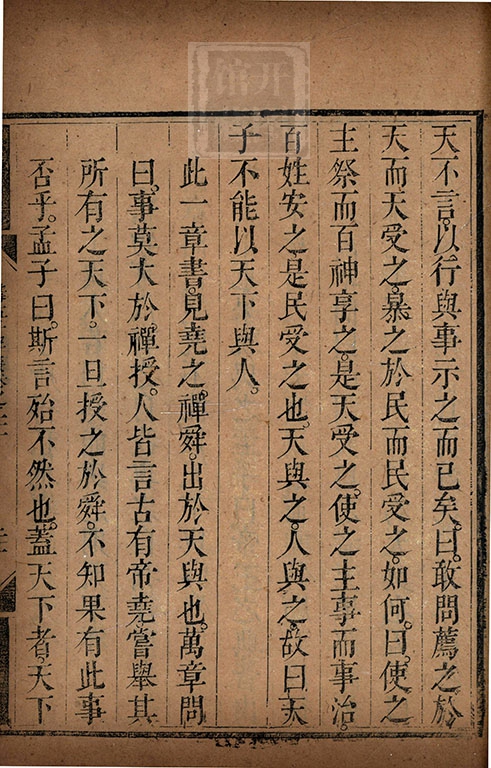 天不言。以行與事示之而已矣。曰。敢問薦之於
天而天受之。暴之於民而民受之。如何。曰。使之
主祭而百神享之。是天受之。使之主事而事治。
百姓安之。是民受之也。天與之。人與之。故曰。天
子不能以天下與人。
此一章書。見堯之禪舜。出於天與也。萬章問
曰。事莫大於禪授。人皆言古有帝堯嘗舉其
所有之天下。一旦授之於舜。不知果有此事
否乎。孟子曰。斯言殆不然也。蓋天下者天下